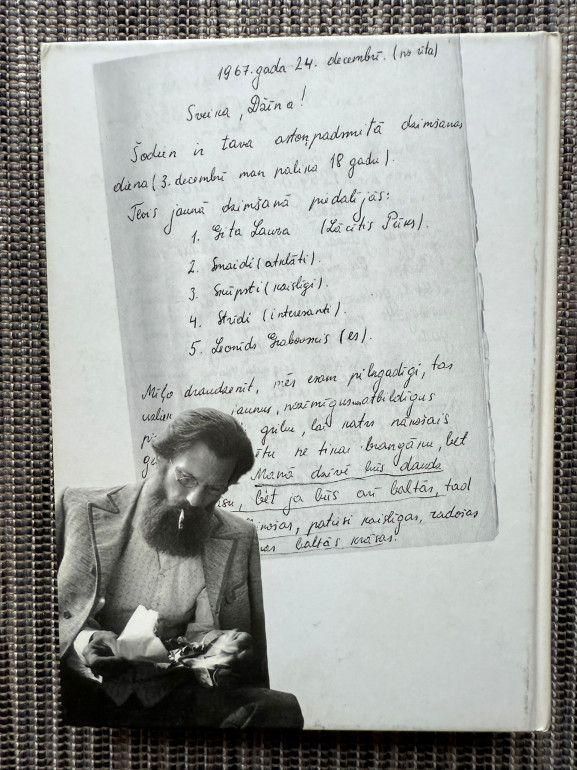 1967. gada 24. decembrī. (no rīta)
Sveika, Daina!
Šodien ir tava astoņpadsmitā dzimšanas
diena (3. decembrī man palika 18 gadu).
Tevis jaunā dzimšanā piedalījās:
1. Gita Laura (Lācītis Pūks).
2. Smaidi (atklāti).
3. Skūpsti (kaislīgi).
4. Strīdi (interesanti).
5. Leonīds Grabovskis (es).
Mīļo draudzenīt, mēs esam pilngadīgi, tas
uzliek jaunus, nozīmīgus un atbildīgus
gribu, lai katrs nākošais
ne tikai brangāku, bet
Manā dzīvē būs daudz
, bet ja būs arī baltās, tad
patiesi kaislīgas, radošas
baltās krāsas.